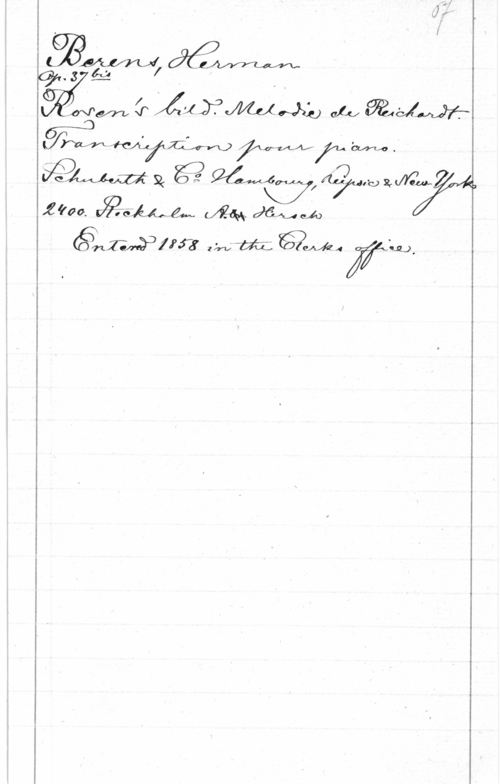 07
Berens, Herman
Op. 37 bis
Rosen's bild. Melodie de Reichardt.
Transcription pour piano.
Schuberth & Co Hambourg, Leipsic & New-York
2400. Stockholm A. Hirsch
Entered 1858 in the Clerks office.